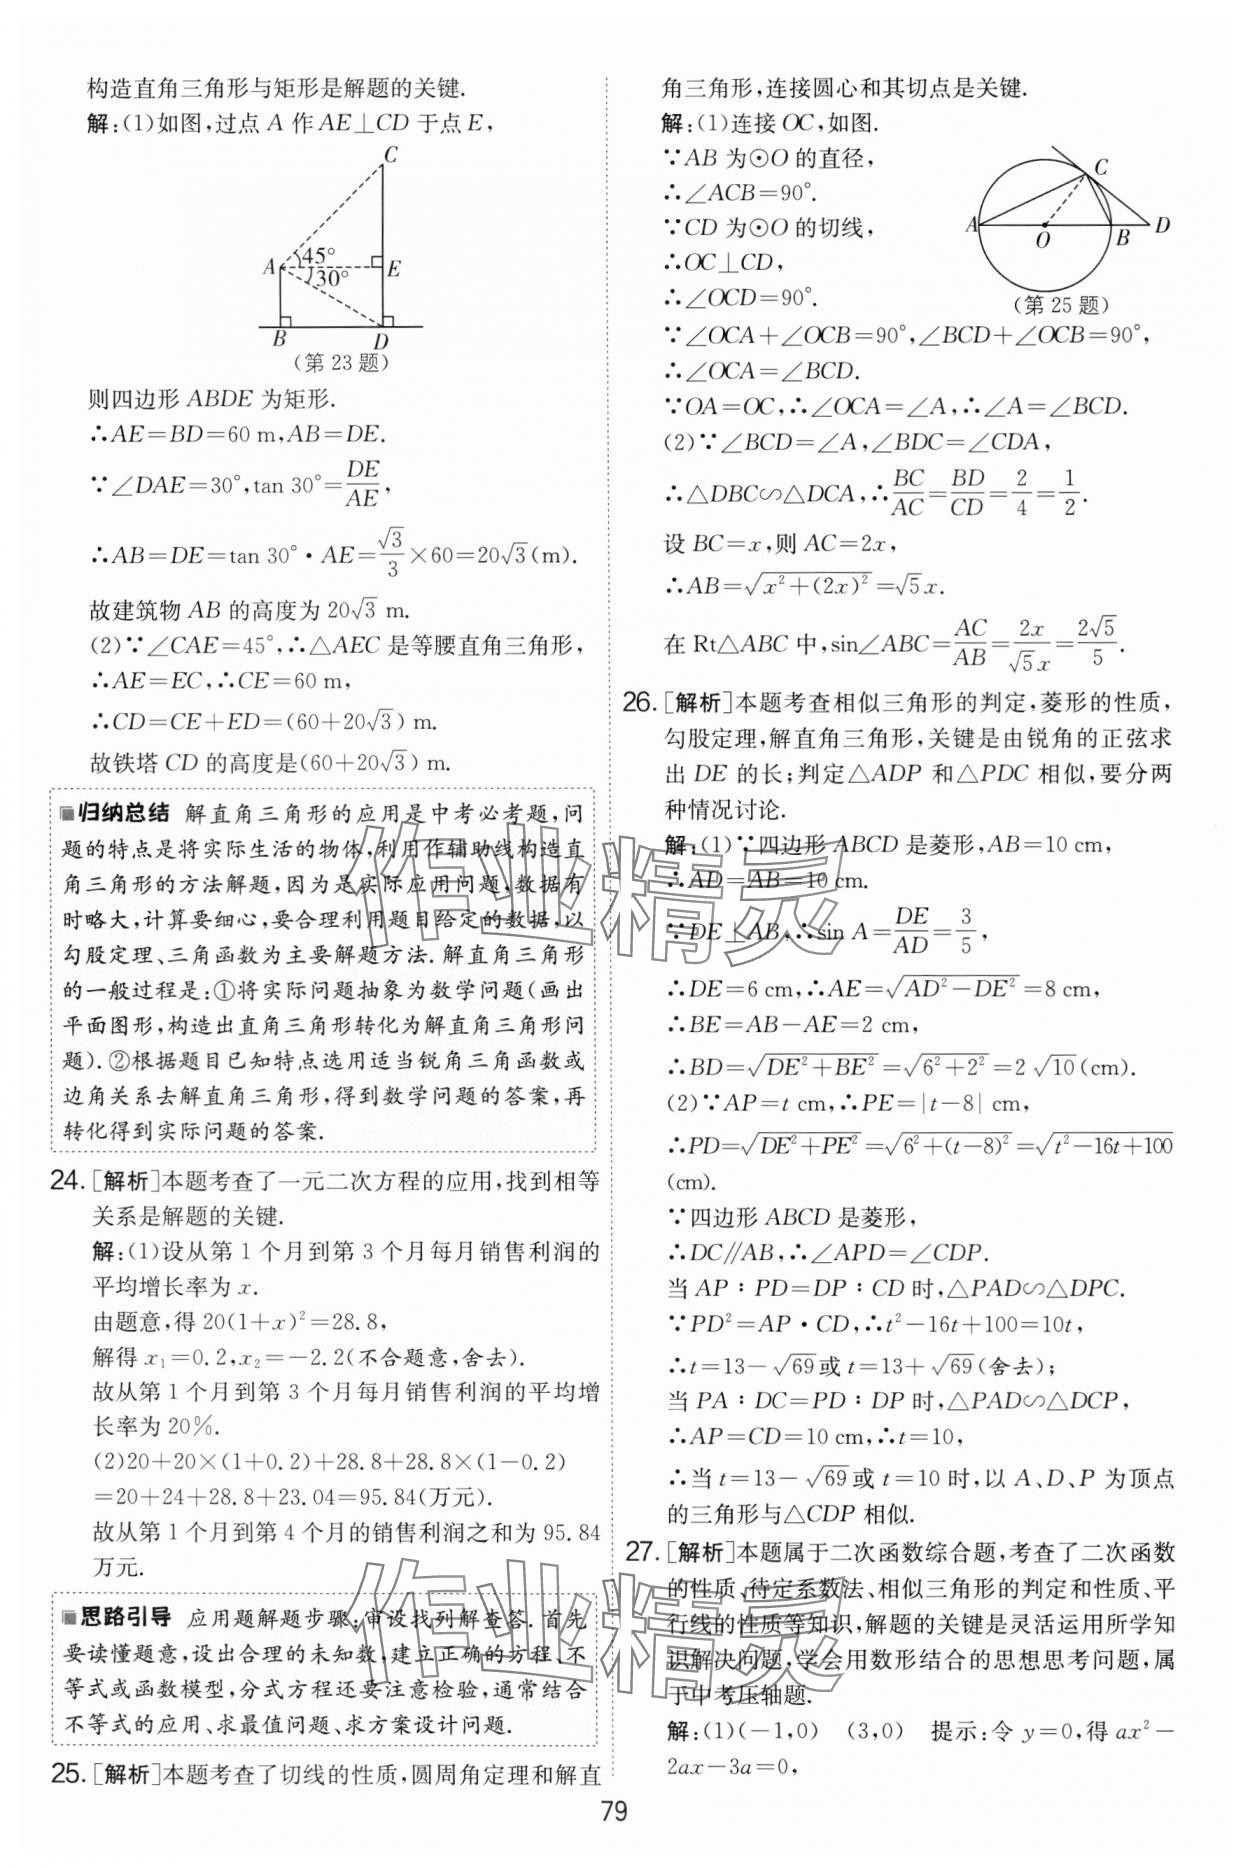 构造直角三角形与矩形是解题的关键.
解:(1)如图,过点 A 作 AE⊥CD 于点 E,
C
A
45°
30°
E
B
D
(第 23 题)
则四边形 ABDE 为矩形.
∴AE=BD=60 m,AB=DE.
∵∠DAE=30°,tan 30°=DE/AE,
∴AB=DE=tan 30°·AE=√3/3×60=20√3(m).
故建筑物 AB 的高度为 20√3 m.
(2)∵∠CAE=45°,∴△AEC 是等腰直角三角形,
∴AE=EC,∴CE=60 m,
∴CD=CE+ED=(60+20√3) m.
故铁塔 CD 的高度是(60+20√3) m.
归纳总结 解直角三角形的应用是中考必考题,问
题的特点是将实际生活的物体,利用作辅助线构造直
角三角形的方法解题,因为是实际应用问题,数据有
时略大,计算要细心,要合理利用题目给定的数据,以
勾股定理、三角函数为主要解题方法.解直角三角形
的一般过程是:①将实际问题抽象为数学问题(画出
平面图形,构造出直角三角形转化为解直角三角形问
题).②根据题目已知特点选用适当锐角三角函数或
边角关系去解直角三角形,得到数学问题的答案,再
转化得到实际问题的答案.
24. [解析]本题考查了一元二次方程的应用,找到相等
关系是解题的关键.
解:(1)设从第 1 个月到第 3 个月每月销售利润的
平均增长率为 x.
由题意,得 20(1+x)²=28.8,
解得 x₁=0.2,x₂=-2.2(不合题意,舍去).
故从第 1 个月到第 3 个月每月销售利润的平均增
长率为 20%.
(2)20+20×(1+0.2)+28.8+28.8×(1-0.2)
=20+24+28.8+23.04=95.84(万元).
故从第 1 个月到第 4 个月的销售利润之和为 95.84
万元.
思路引导 应用题解题步骤:审设找列解查答.首先
要读懂题意,设出合理的未知数,建立正确的方程、不
等式或函数模型,分式方程还要注意检验,通常结合
不等式的应用、求最值问题、求方案设计问题.
25. [解析]本题考查了切线的性质,圆周角定理和解直
角三角形,连接圆心和其切点是关键.
解:(1)连接 OC,如图.
∵AB 为⊙O 的直径,
∴∠ACB=90°.
∵CD 为⊙O 的切线,
∴OC⊥CD,
∴∠OCD=90°.
C
A
O
B
D
(第 25 题)
∵∠OCA+∠OCB=90°,∠BCD+∠OCB=90°,
∴∠OCA=∠BCD.
∵OA=OC,∴∠OCA=∠A,∴∠A=∠BCD.
(2)∵∠BCD=∠A,∠BDC=∠CDA,
∴△DBC∽△DCA,∴BC/AC=BD/CD=2/4=1/2.
设 BC=x,则 AC=2x,
∴AB=√(x²+(2x)²)=√5x.
在 Rt△ABC 中,sin∠ABC=AC/AB=2x/√5x=2√5/5.
26. [解析]本题考查相似三角形的判定,菱形的性质,
勾股定理,解直角三角形,关键是由锐角的正弦求
出 DE 的长;判定△ADP 和△PDC 相似,要分两
种情况讨论.
解:(1)∵四边形 ABCD 是菱形,AB=10 cm,
∴AD=AB=10 cm.
∵DE⊥AB,∴sin A=DE/AD=3/5,
∴DE=6 cm,∴AE=√(AD²-DE²)=8 cm,
∴BE=AB-AE=2 cm,
∴BD=√(DE²+BE²)=√(6²+2²)=2√10(cm).
(2)∵AP=t cm,∴PE=|t-8| cm,
∴PD=√(DE²+PE²)=√(6²+(t-8)²)=√(t²-16t+100)
(cm).
∵四边形 ABCD 是菱形,
∴DC∥AB,∴∠APD=∠CDP.
当 AP∶PD=DP∶CD 时,△PAD∽△DPC.
∵PD²=AP·CD,∴t²-16t+100=10t,
∴t=13-√69或 t=13+√69(舍去);
当 PA∶DC=PD∶DP 时,△PAD∽△DCP,
∴AP=CD=10 cm,∴t=10,
∴当 t=13-√69或 t=10 时,以 A、D、P 为顶点
的三角形与△CDP 相似.
27. [解析]本题属于二次函数综合题,考查了二次函数
的性质、待定系数法、相似三角形的判定和性质、平
行线的性质等知识,解题的关键是灵活运用所学知
识解决问题,学会用数形结合的思想思考问题,属
于中考压轴题.
解:(1)(-1,0) (3,0) 提示:令 y=0,得 ax²-
2ax-3a=0,
79
作业精灵
作业精灵